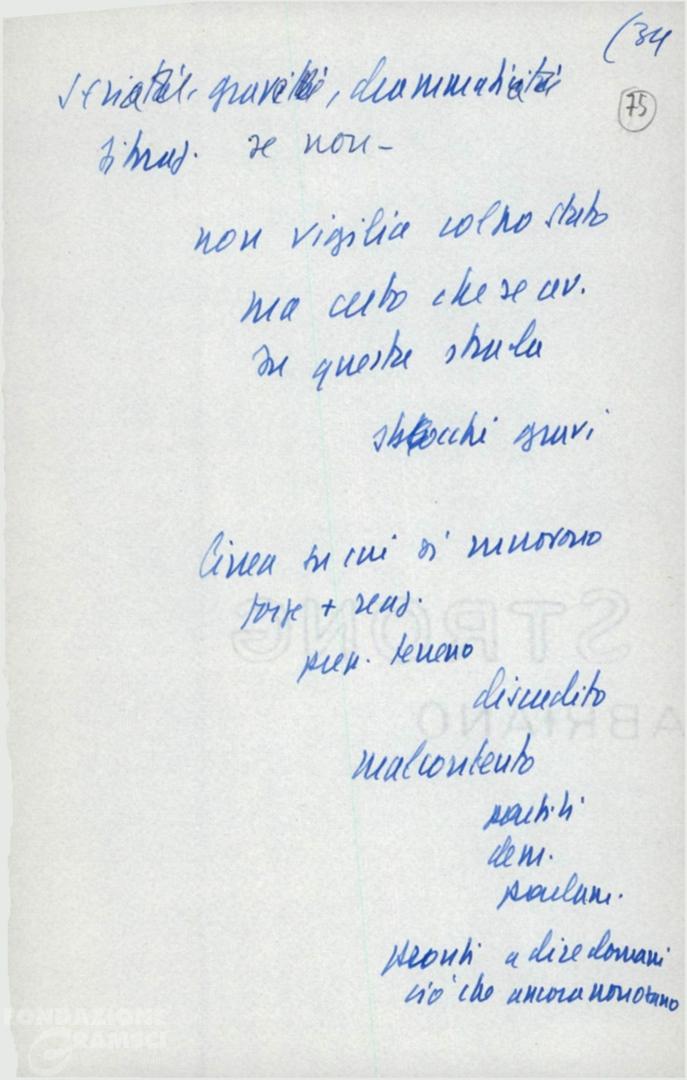 (34
75
serietà, gravità, drammaticità
situaz. se non -
non vigilia colpo stato
ma certo che se av.
su questa strada
sbocchi gravi
linea su cui si muovono
forze + reaz.
prep. terreno
discredito
malcontento
partiti
dem.
parlam.
pronti a dire domani
ciò che ancora non osano
STRONG
FABRIANO
FONDAZIONE
GRAMSCI